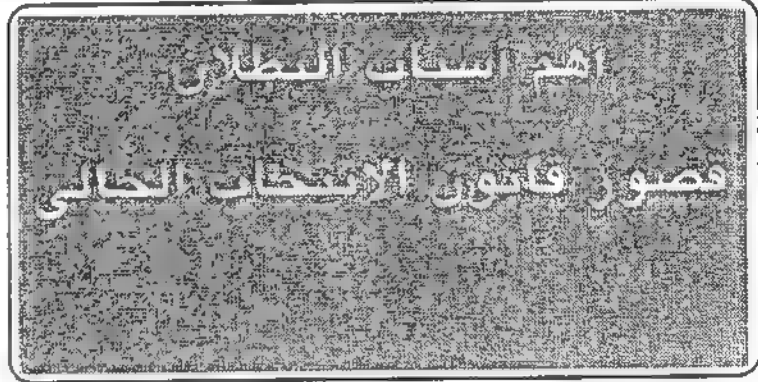 اهم اسباب البطلان
قصور قانون الانتخاب الحالي